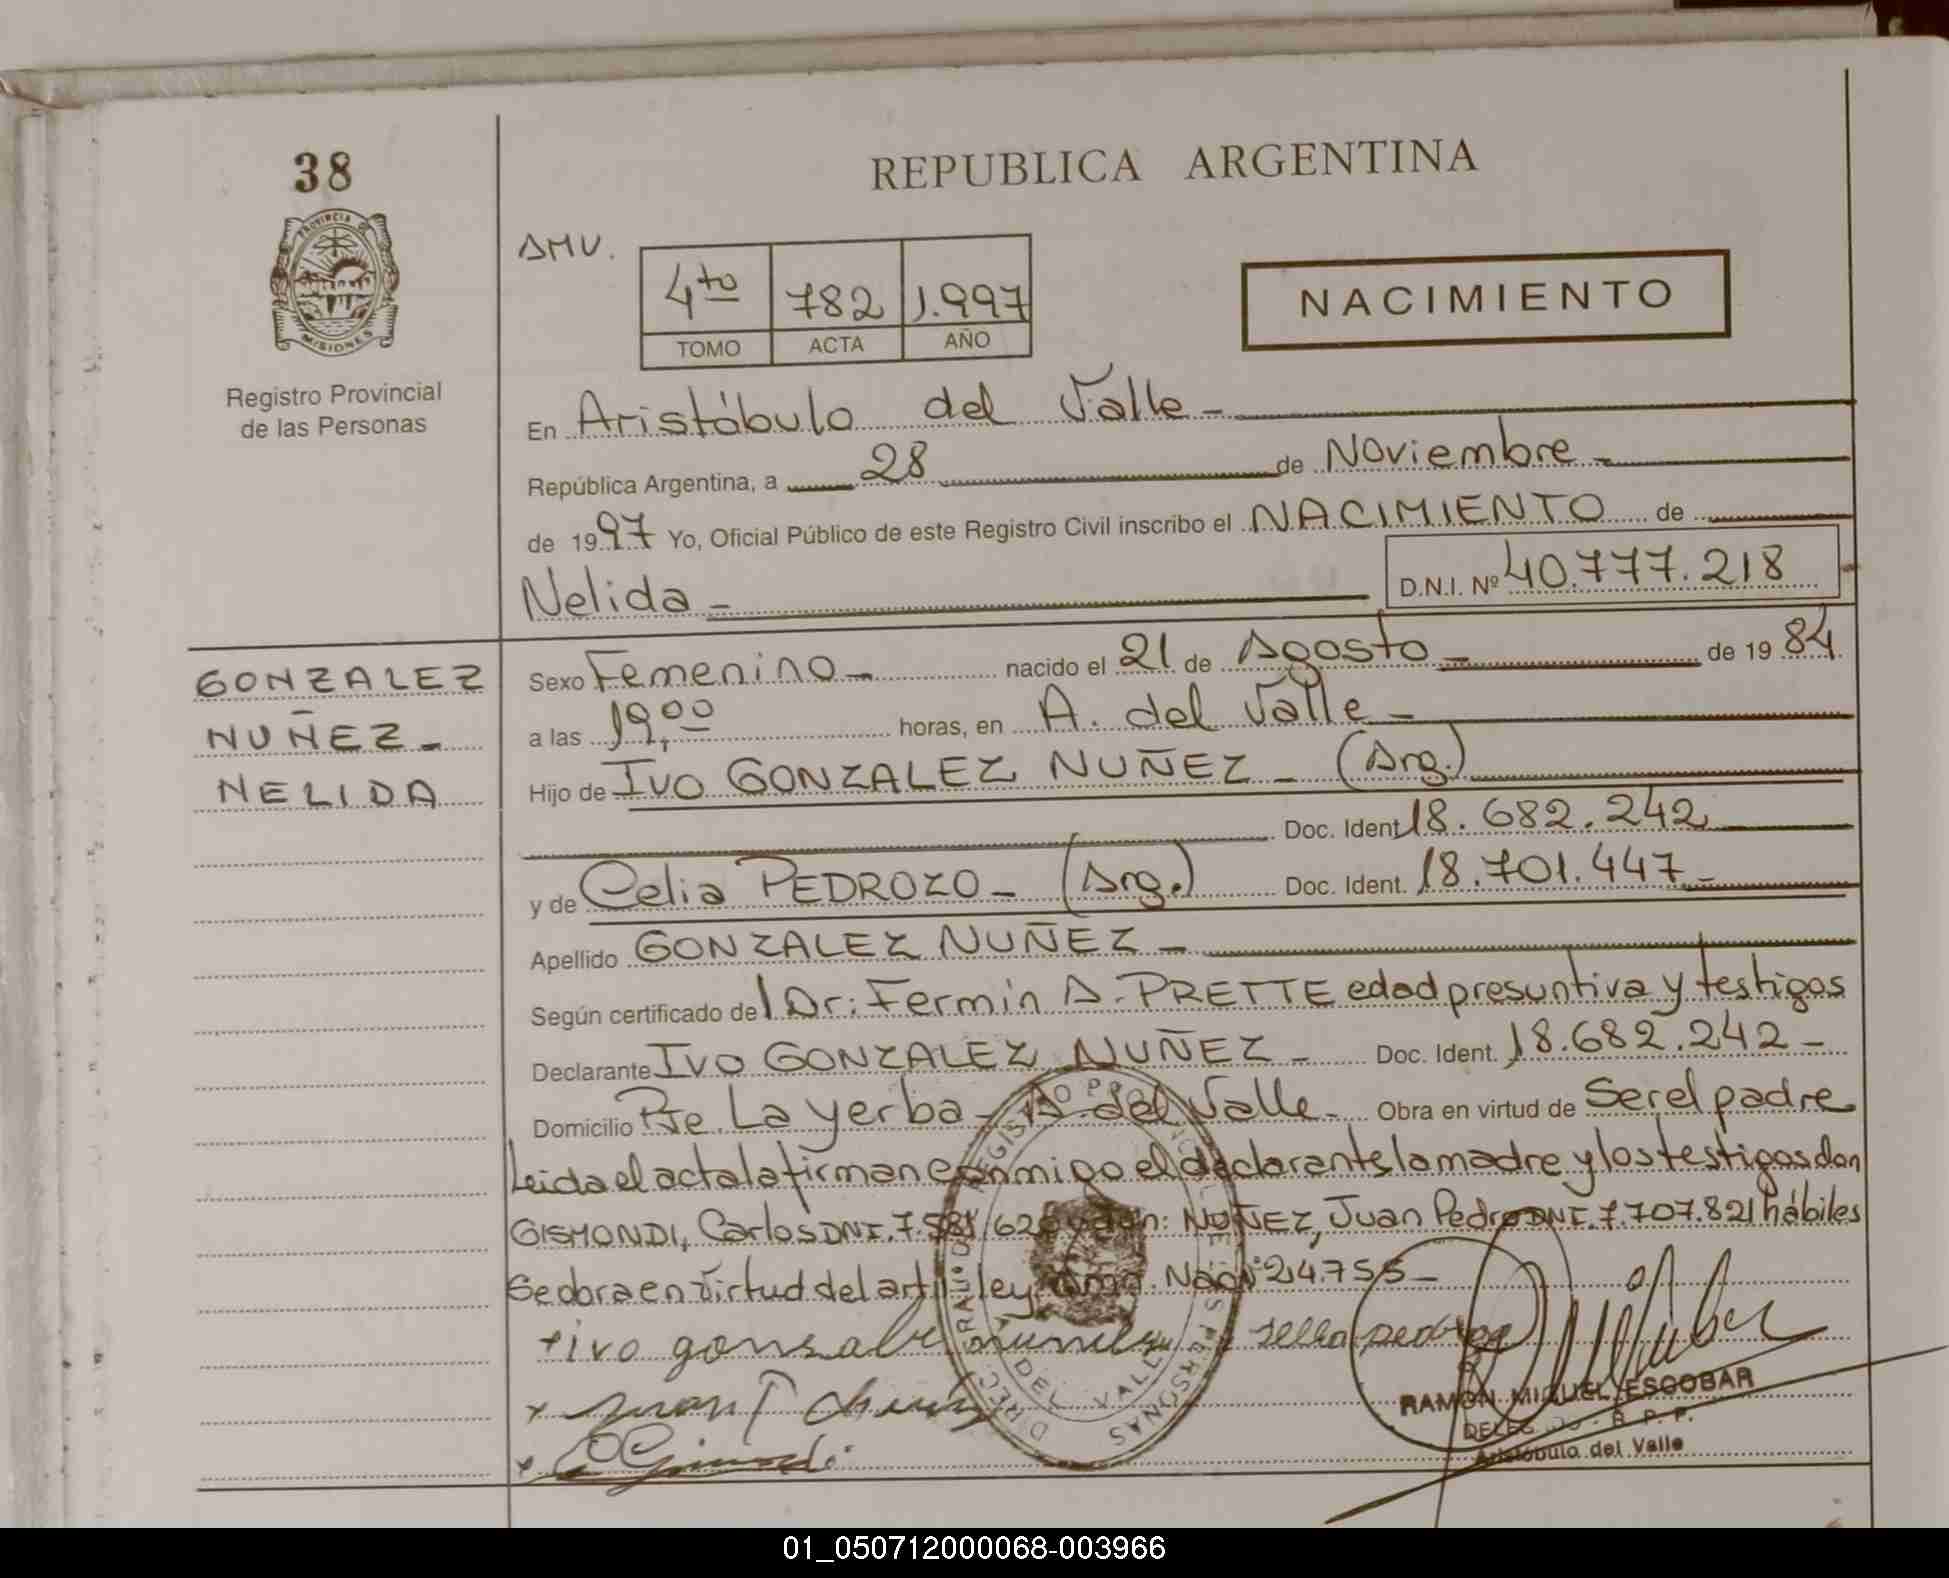 38
REPUBLICA ARGENTINA
PROVINCIA
MISIONES
Registro Provincial
de las Personas
AMV.
4to 782 1.997
TOMO ACTA AÑO
NACIMIENTO
En Aristóbulo del Valle -
República Argentina, a 28 de Noviembre -
de 1997 Yo, Oficial Público de este Registro Civil inscribo el NACIMIENTO de
Nelida - D.N.I. Nº 40.777.218
GONZALEZ
NUÑEZ -
NELIDA
Sexo Femenino - nacido el 21 de Agosto - de 1984
a las 19,00 horas, en A. del Valle -
Hijo de Ivo GONZALEZ NUÑEZ - (Arg.)
Doc. Ident 18.682.242
y de Celia PEDROZO - (Arg.) Doc. Ident. 18.701.447 -
Apellido GONZALEZ NUÑEZ -
Según certificado del Dr: Fermín A. PRETTE edad presuntiva y testigos
Declarante Ivo GONZALEZ NUÑEZ - Doc. Ident. 18.682.242 -
Domicilio Pje. La yerba - A. del Valle - Obra en virtud de Ser el padre
Leida el acta la firman conmigo el declarante la madre y los testigos don
GISMONDI, Carlos DNI. y don: NUÑEZ, Juan Pedro DNI. 7.707.821 hábiles
Se obra en virtud del art ley Nac Nº 24.755 -
+ivo
RAMON MIGUEL ESCOBAR
R. P. P.
Aristóbulo del Valle
01_050712000068-003966